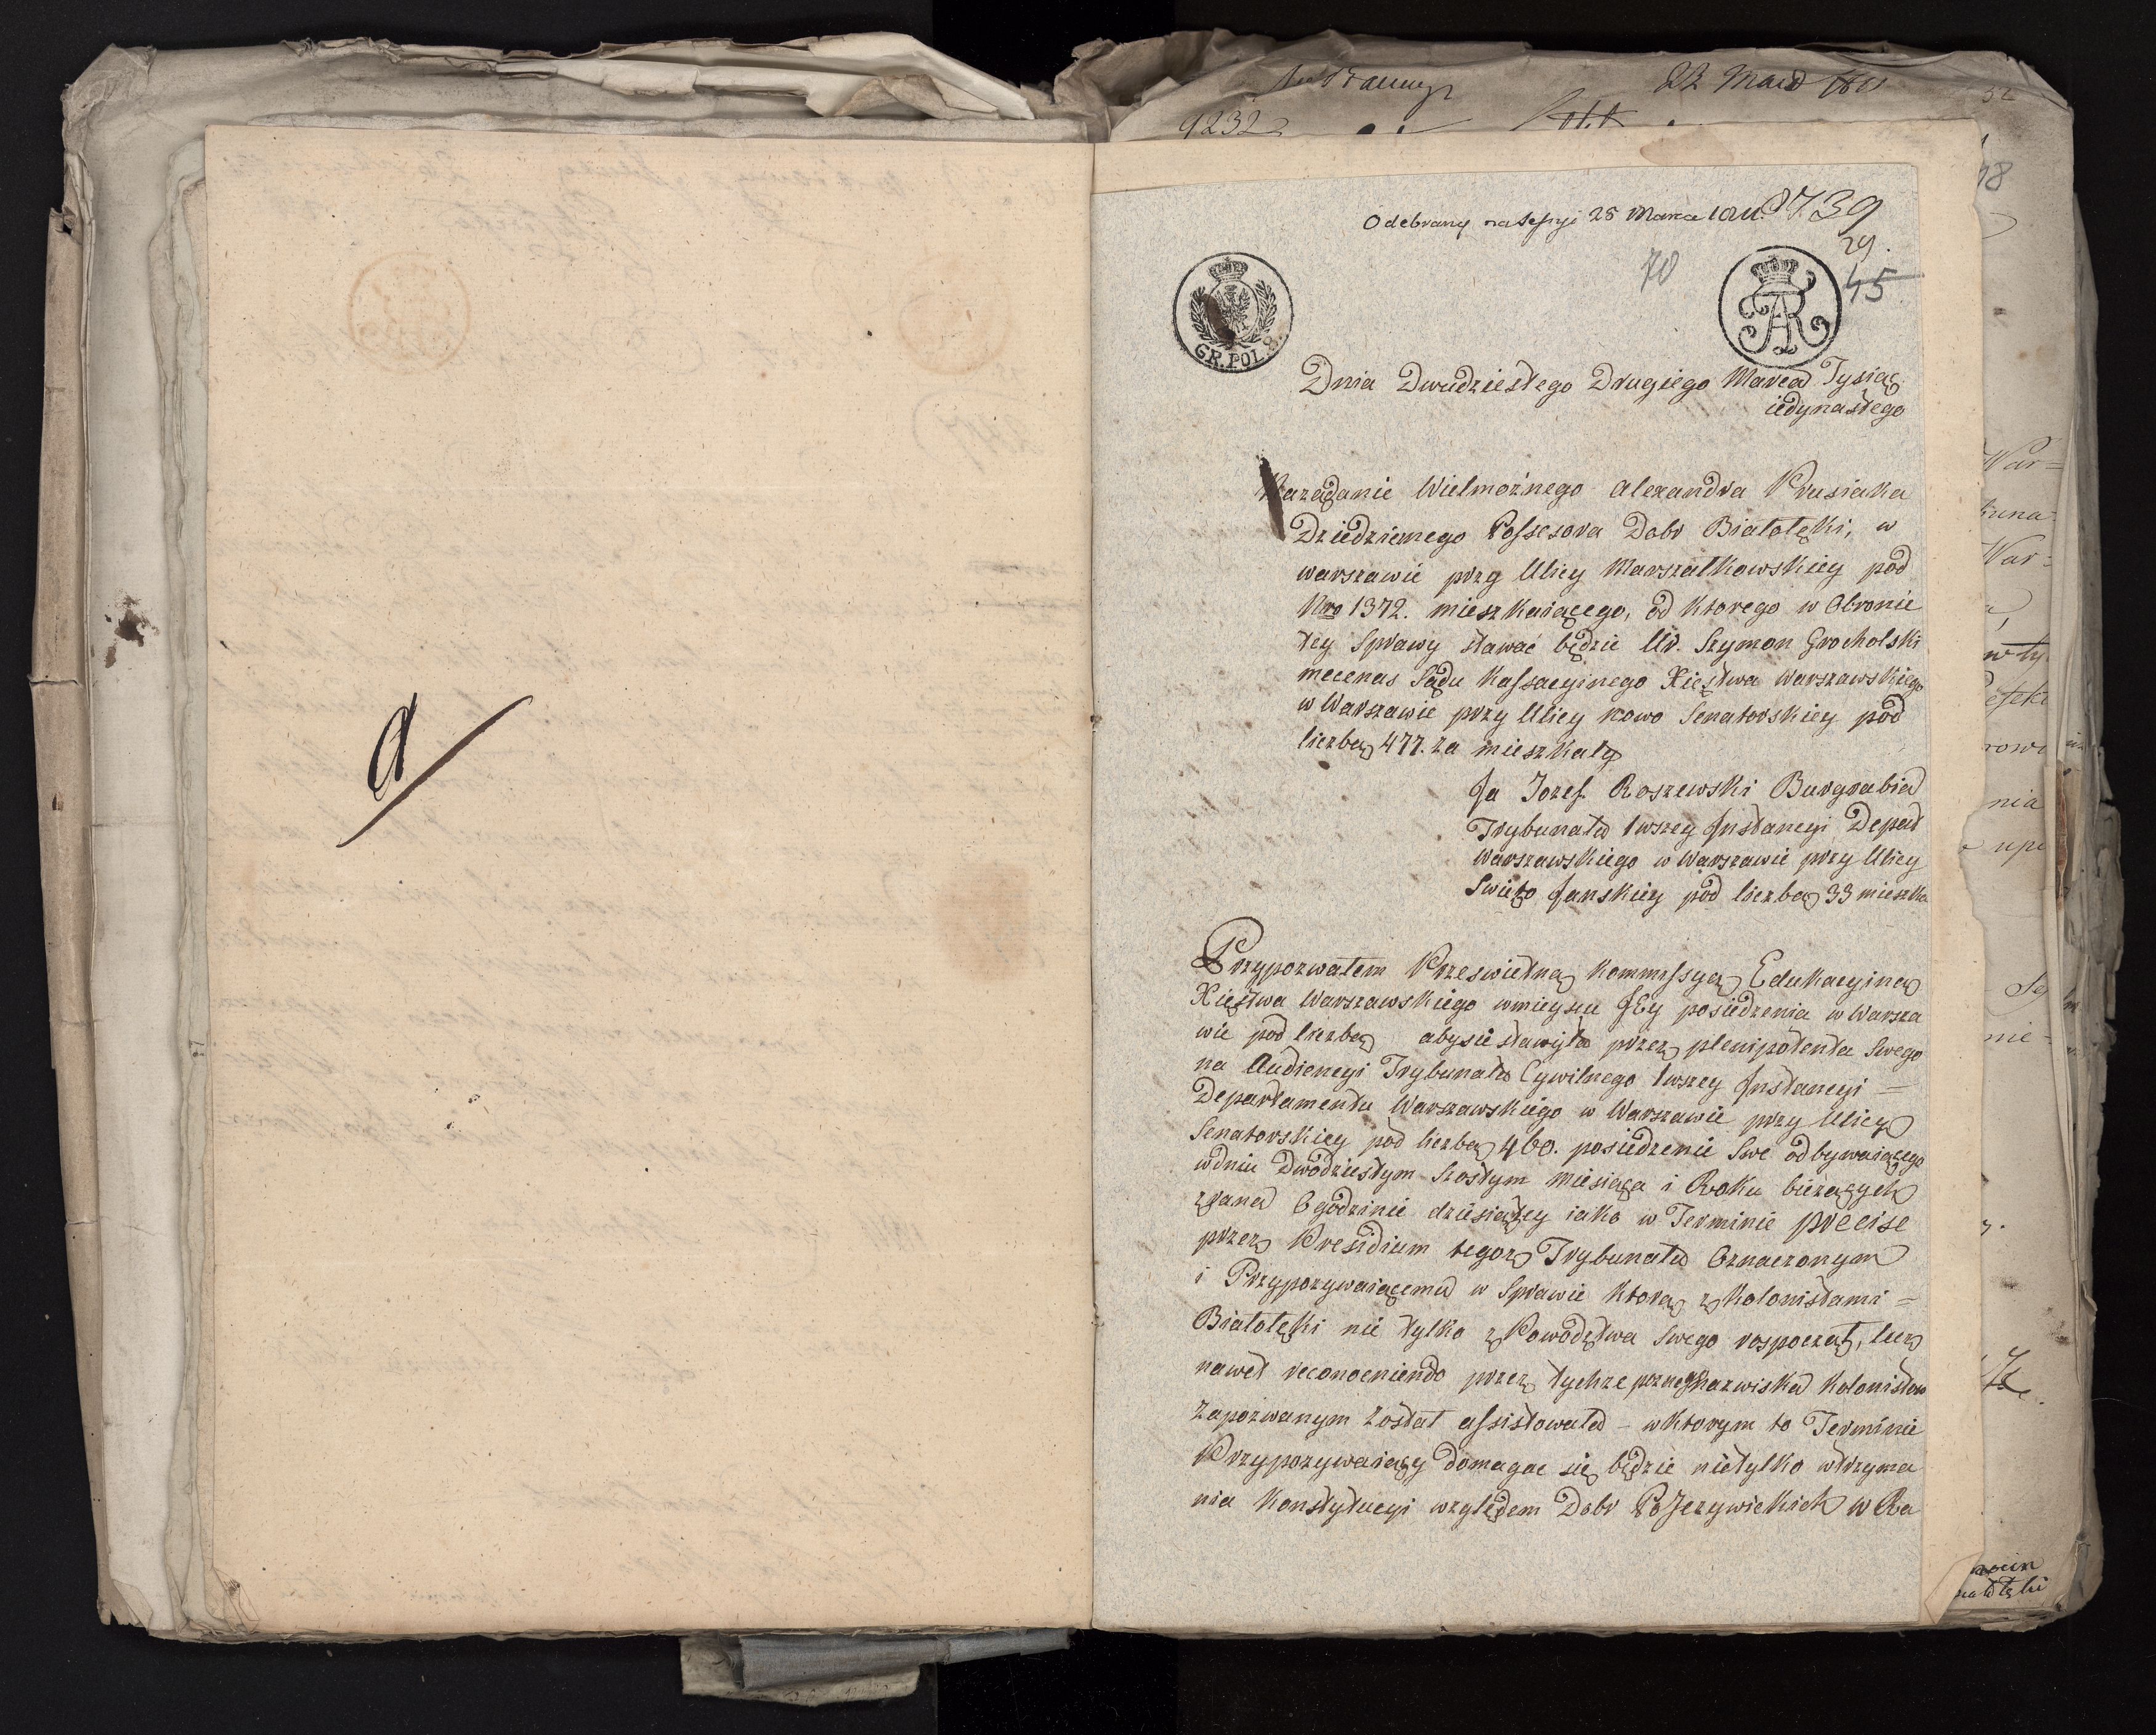 a
22 Mar
9232
Odebrany na Sessyi 28 Marca 1811. 8739
29.
70
45
GR. POL. 8.
FAR
Dnia Dwudziestego Drugiego Marca Tysiąc
iedynastego
Nażądanie Wielmożnego Alexandra Krusiaka
Dziedzicznego Possesora Dobr Białołęki, w
warszawie przy Ulicy Marszałkowskiey pod
Nro 1372. mieszkaiącego, od ktorego w Obronie
tey Sprawy stawać będzie Ur. Szymon Grocholski
mecenas Sądu Kassacyinego Xięstwa Warszawskiego
w Warszawie przy Ulicy nowo Senatorskiey pod
liczbą 477. za mieszkały
Ja Jozef Roszewski Burgrabia
Trybunału 1wszey Instancyi Depart
Warszawskiego w Warszawie przy Ulicy
Swięto Janskiey pod liczbą 33 mieszka
Przypozwałem Prześwietną Kommissyą Edukacyiną
Xięstwa Warszawskiego wmieyscu JEy posiedzenia w Warsza
wie pod liczbą abysię stawiła przez plenipotenta Swego
na Audiencyi Trybunału Cywilnego 1wszey Instancyi =
Departamentu Warszawskiego w Warszawie przy Ulicy
Senatorskiey pod liczbą 460. posiedzenie Swe odbywaiącego
wdniu Dwódziestym Szostym Miesiąca i Roku bieżących
zrana O godzinie dziesiątey iako w Terminie precise
przez Presidium tegoż Trybunału Oznaczonym
i Przypozywaiącemu w Sprawie ktorą z Kolonistami =
Białołęki nie tylko z Powodztwa Swego rospoczął, lecz
nawet reconveniendo przez tychże nazwiska Kolonistow
Zapozwanym został assistowała - w ktorym to Terminie
Przypozywaiący domagac się będzie nietylko utrzyma
nia Konstytucyi względem Dobr PoJezuickich w Ro